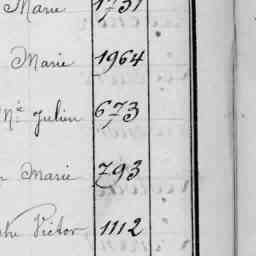 Marie 1731
Marie 1964
Mie Julien 673
Marie 793
Victor 1112